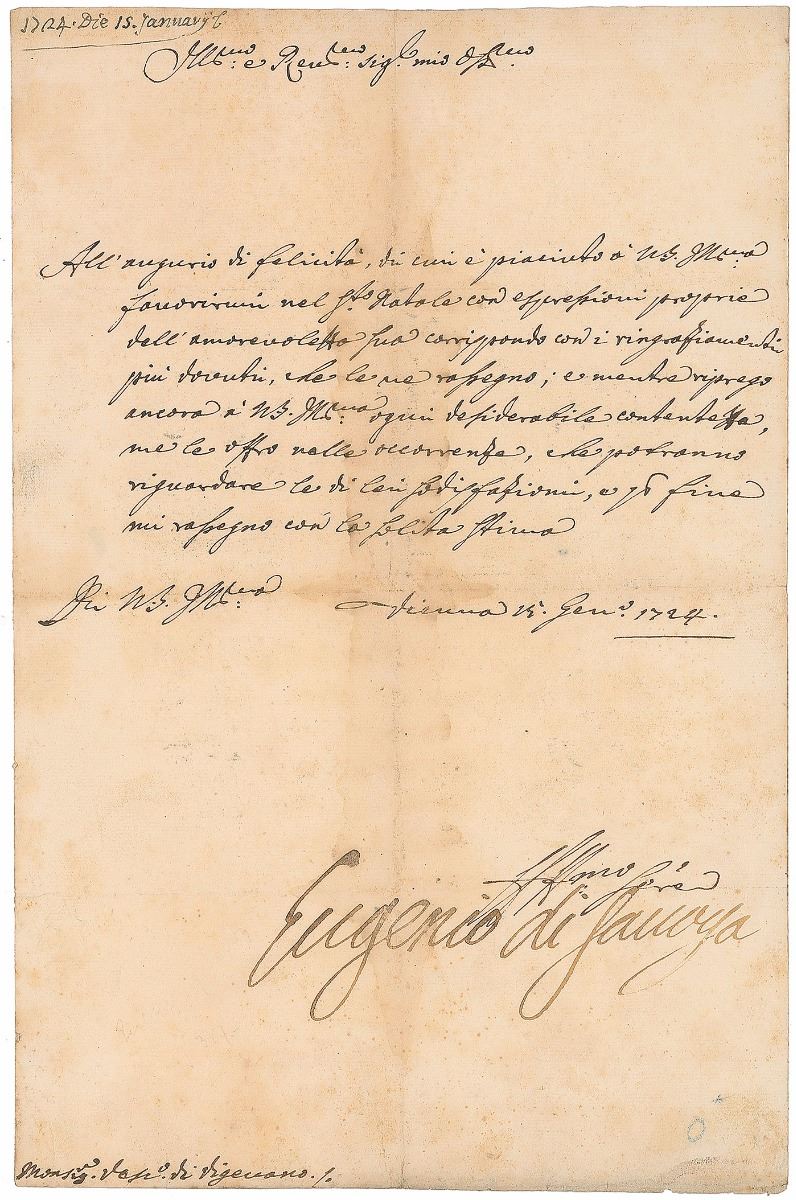 1724. Die 15. Januarij
Ill.mo e Rev.mo sig.r mio Oss.mo
All'augurio di felicità, di cui è piaciuto à V.S. Ill.ma
favorirmi nel S.to Natale con espressioni proprie
dell'amorevolezza sua corrispondo con i ringraziamenti
più dovuti, che le ne rassegno; e mentre riprego
ancora à V.S. Ill.ma ogni desiderabile contentezza,
me le offro nelle occorrenze, che potranno
riguardare le di lei sodisfazioni, e p fine
mi rassegno con la solita stima
Di V.S. Ill.ma Vienna 15. Gen.o 1724.
Aff.mo Ser.e
Eugenio di Savoya
Monsig.r di